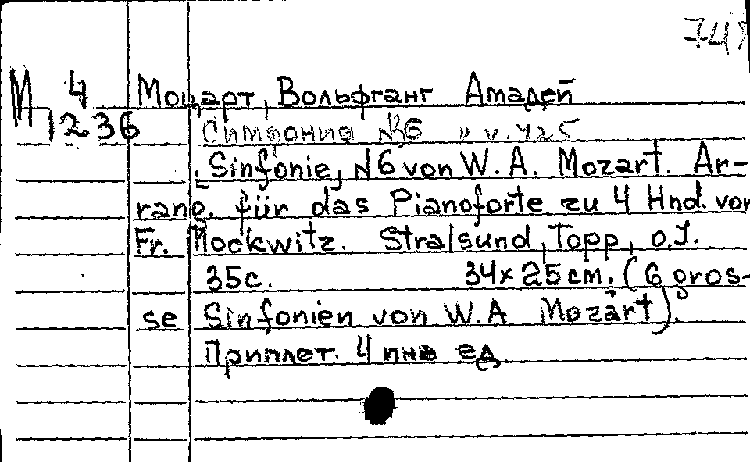 748
М 4 Моцарт, Вольфганг Амадей
1236 Симфония №6
Sinfonie, N6 von W. A. Mozart. Ar-
rang. für das Pianoforte zu 4 Hnd. von
Fr. Mockwitz. Stralsund, Topp, o.J.
35с. 34×25cm. (6 gros-
se Sinfonien von W.A Mozart).
Приплет. 4 пнв ед.